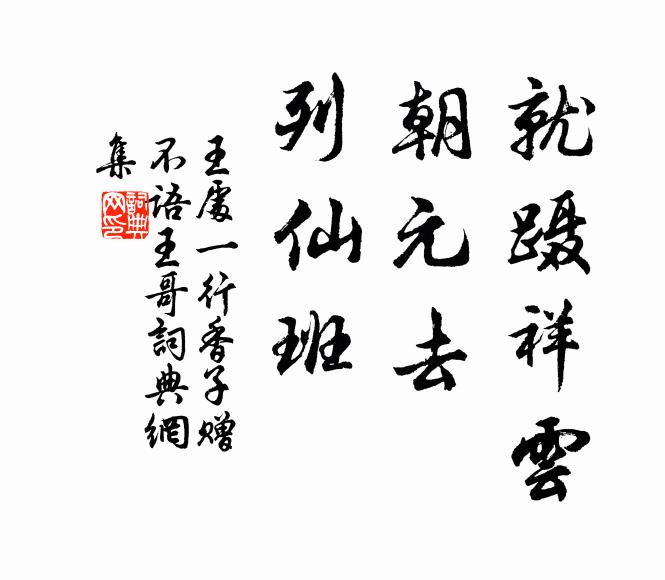 就蹑祥雲
朝元去
列仙班
王處一行香子赠
不语王哥詞典網
集
詞典
网印